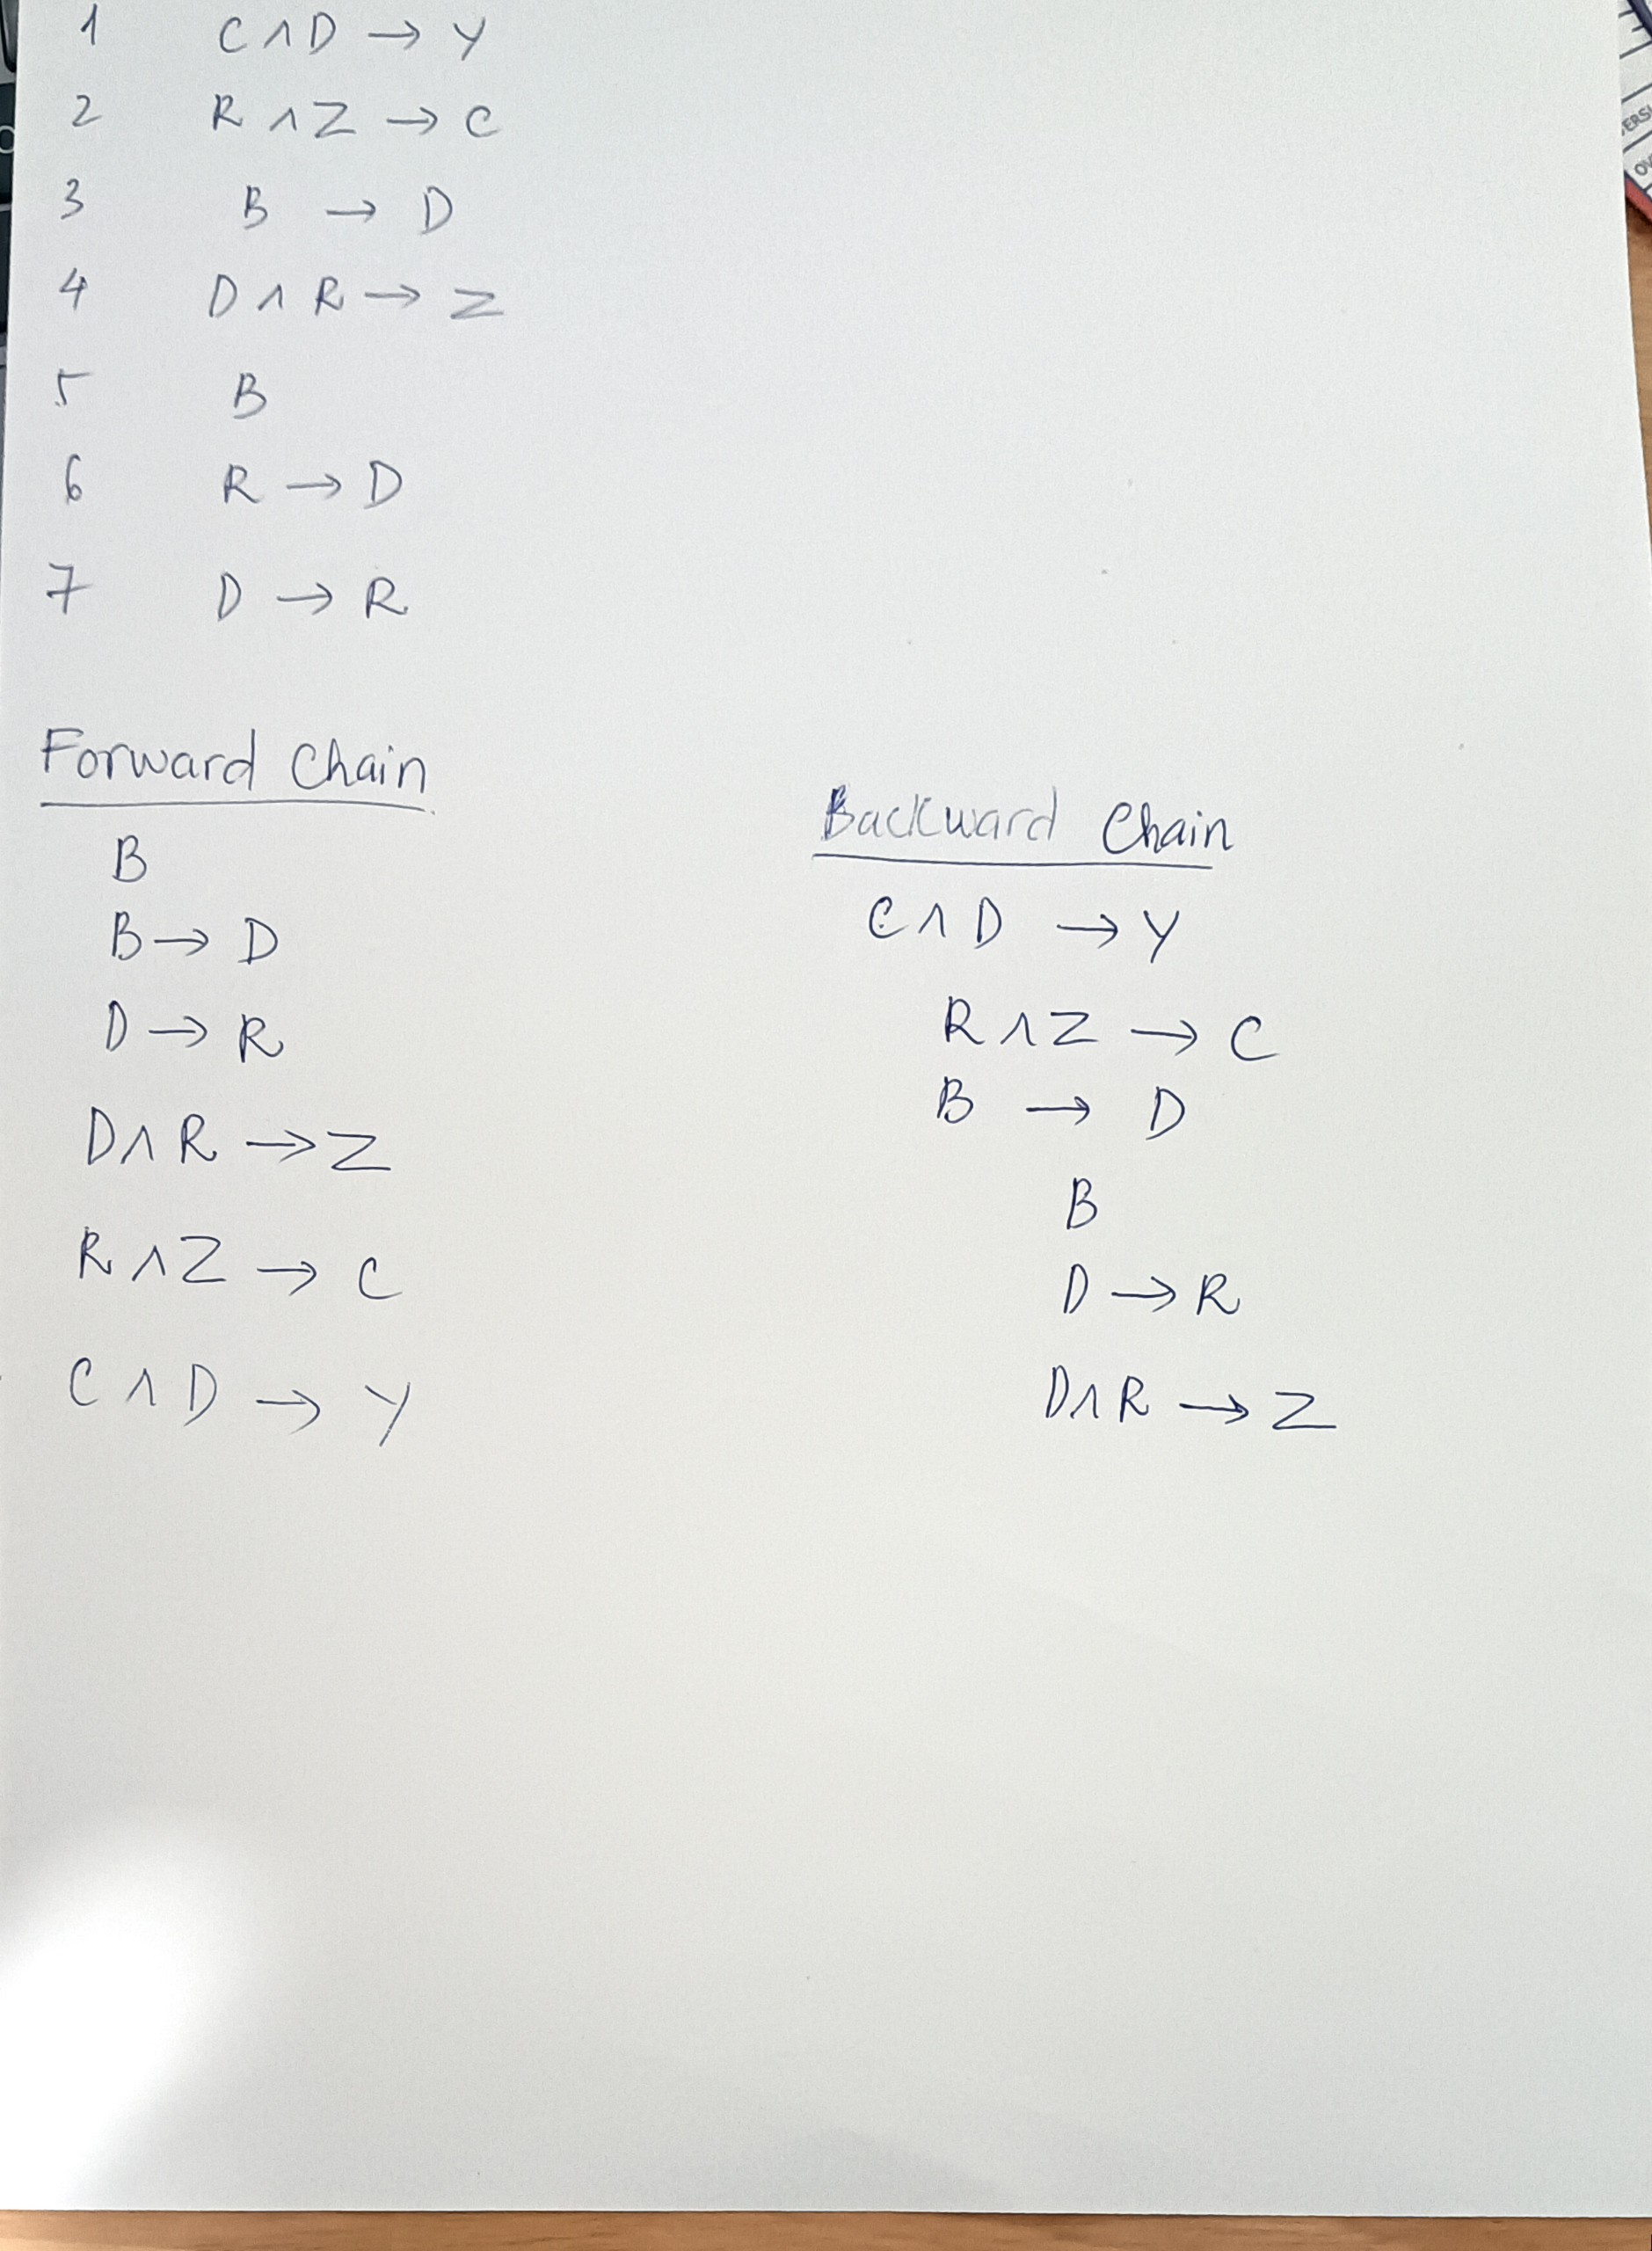 1 C ∧ D → Y
2 R ∧ Z → C
3 B → D
4 D ∧ R → Z
5 B
6 R → D
7 D → R
Forward Chain
B
B → D
D → R
D ∧ R → Z
R ∧ Z → C
C ∧ D → Y
Backward Chain
C ∧ D → Y
R ∧ Z → C
B → D
B
D → R
D ∧ R → Z